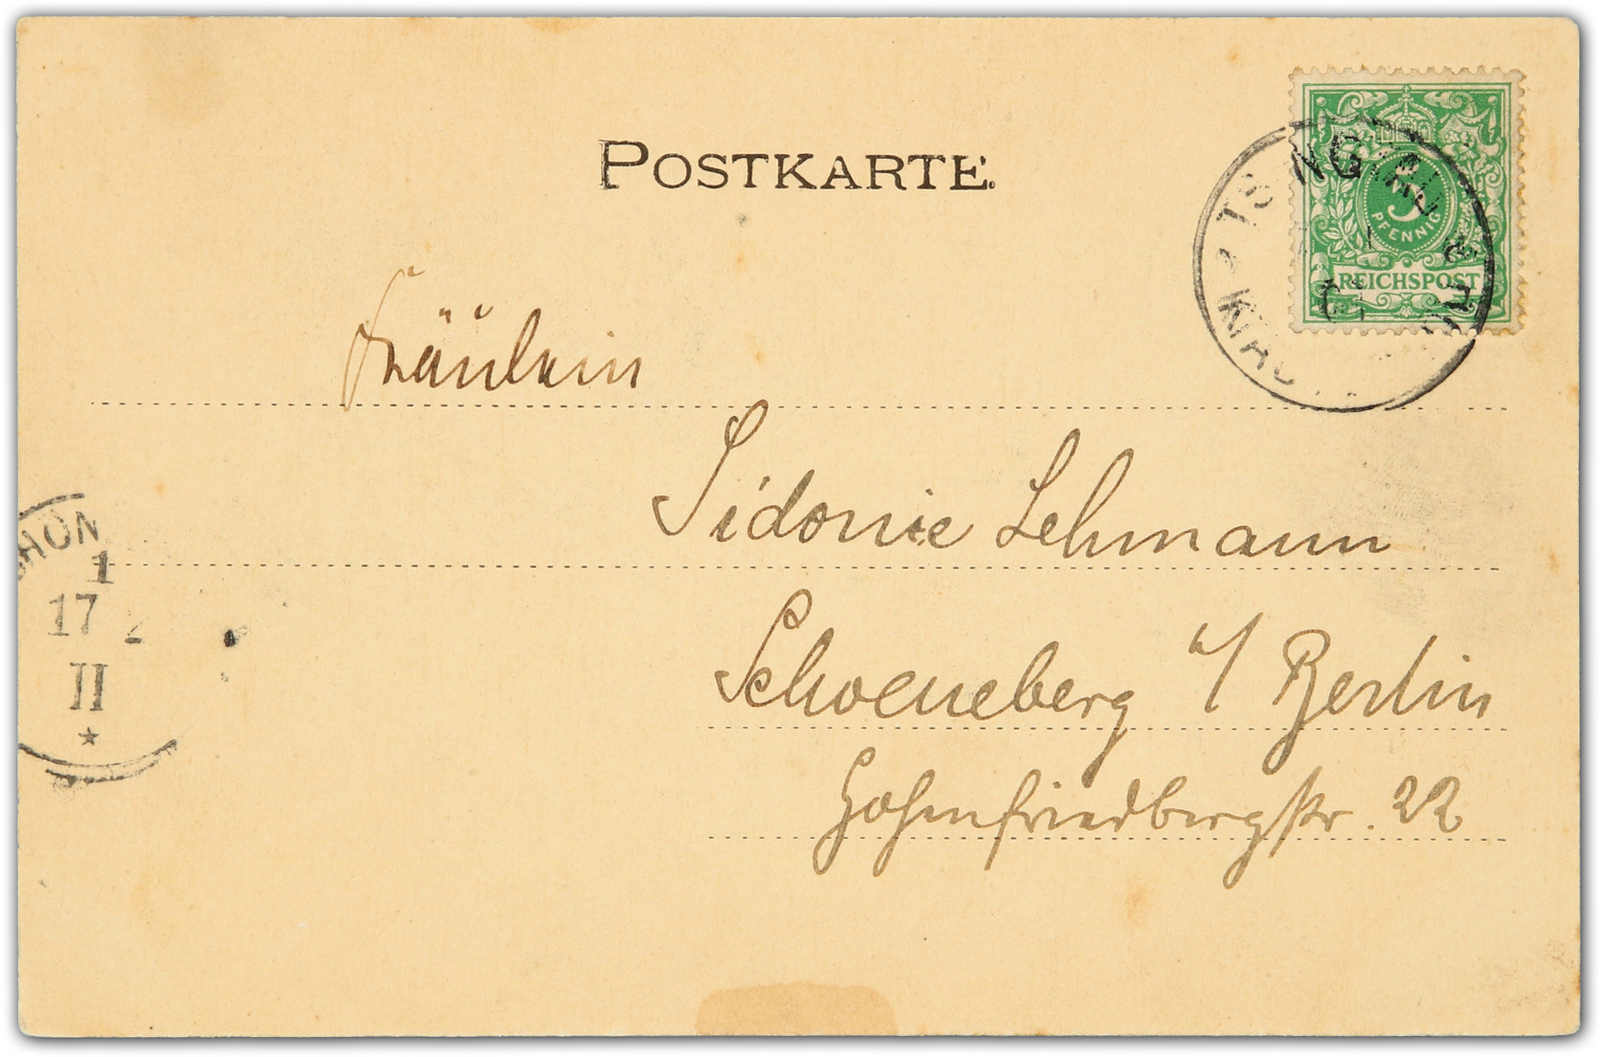 POSTKARTE.
5
PFENNIG
REICHSPOST
TSINGTAU
KIAU
Fräulein
Sidonie Lehmann
Schoeneberg b/ Berlin
Hohenfriedbergstr. 22
SCHÖN
1
17 2
II